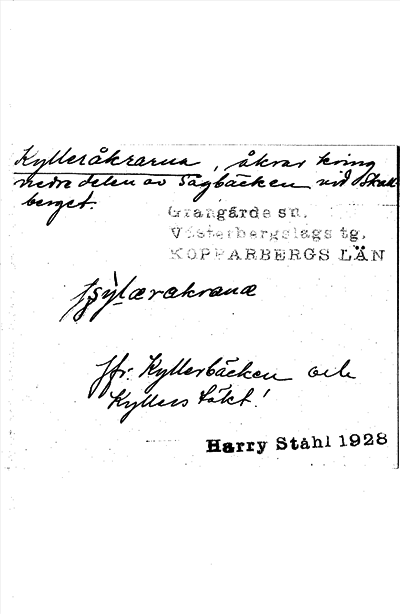 Kylleråkrarna, åkrar kring
nedre delen av Sågbäcken vid Skall-
berget.
Grangärde sn.
Västerbergslags tg.
KOPPARBERGS LÄN
Jfr. Kyllerbäcken och
Kyllers täkt!
Harry Ståhl 1928